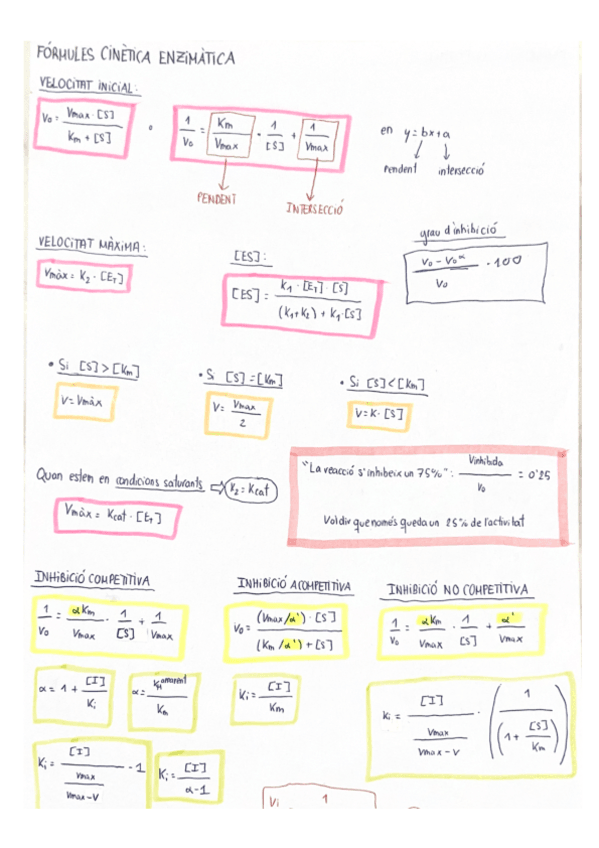 FÓRMULES CINÈTICA ENZIMÀTICA
VELOCITAT INICIAL:
V₀ = Vmax · [S] / Km + [S]
o
1 / V₀ = Km / Vmax · 1 / [S] + 1 / Vmax
en y = bx + a
Pendent intersecció
PENDENT
INTERSECCIÓ
VELOCITAT MÀXIMA:
Vmàx = K₂ · [E_T]
[ES]:
[ES] = K₁ · [E_T] · [S] / (K₋₁ + K₂) + K₁·[S]
grau d'inhibició
V₀ - V₀^α / V₀ · 100
• Si [S] > [Km]
V = Vmàx
• Si [S] = [Km]
V = Vmax / 2
• Si [S] < [Km]
V = K · [S]
Quan estem en condicions saturants ⇨ K₂ = Kcat
Vmàx = Kcat · [E_T]
"La reacció s'inhibeix un 75%": Vinhibida / V₀ = 0'25
Vol dir que només queda un 25% de l'activitat
INHIBICIÓ COMPETITIVA
1 / V₀ = αKm / Vmax · 1 / [S] + 1 / Vmax
α = 1 + [I] / Ki
α = Km^aparent / Km
Ki = [I] / Vmax / Vmax - V · -1
Ki = [I] / α-1
INHIBICIÓ ACOMPETITIVA
V₀ = (Vmax/α') · [S] / (Km/α') + [S]
Ki = [I] / Km
INHIBICIÓ NO COMPETITIVA
1 / V₀ = αKm / Vmax · 1 / [S] + α' / Vmax
Ki = [I] / Vmax / Vmax - V · (1 / (1 + [S] / Km))
Vi 1